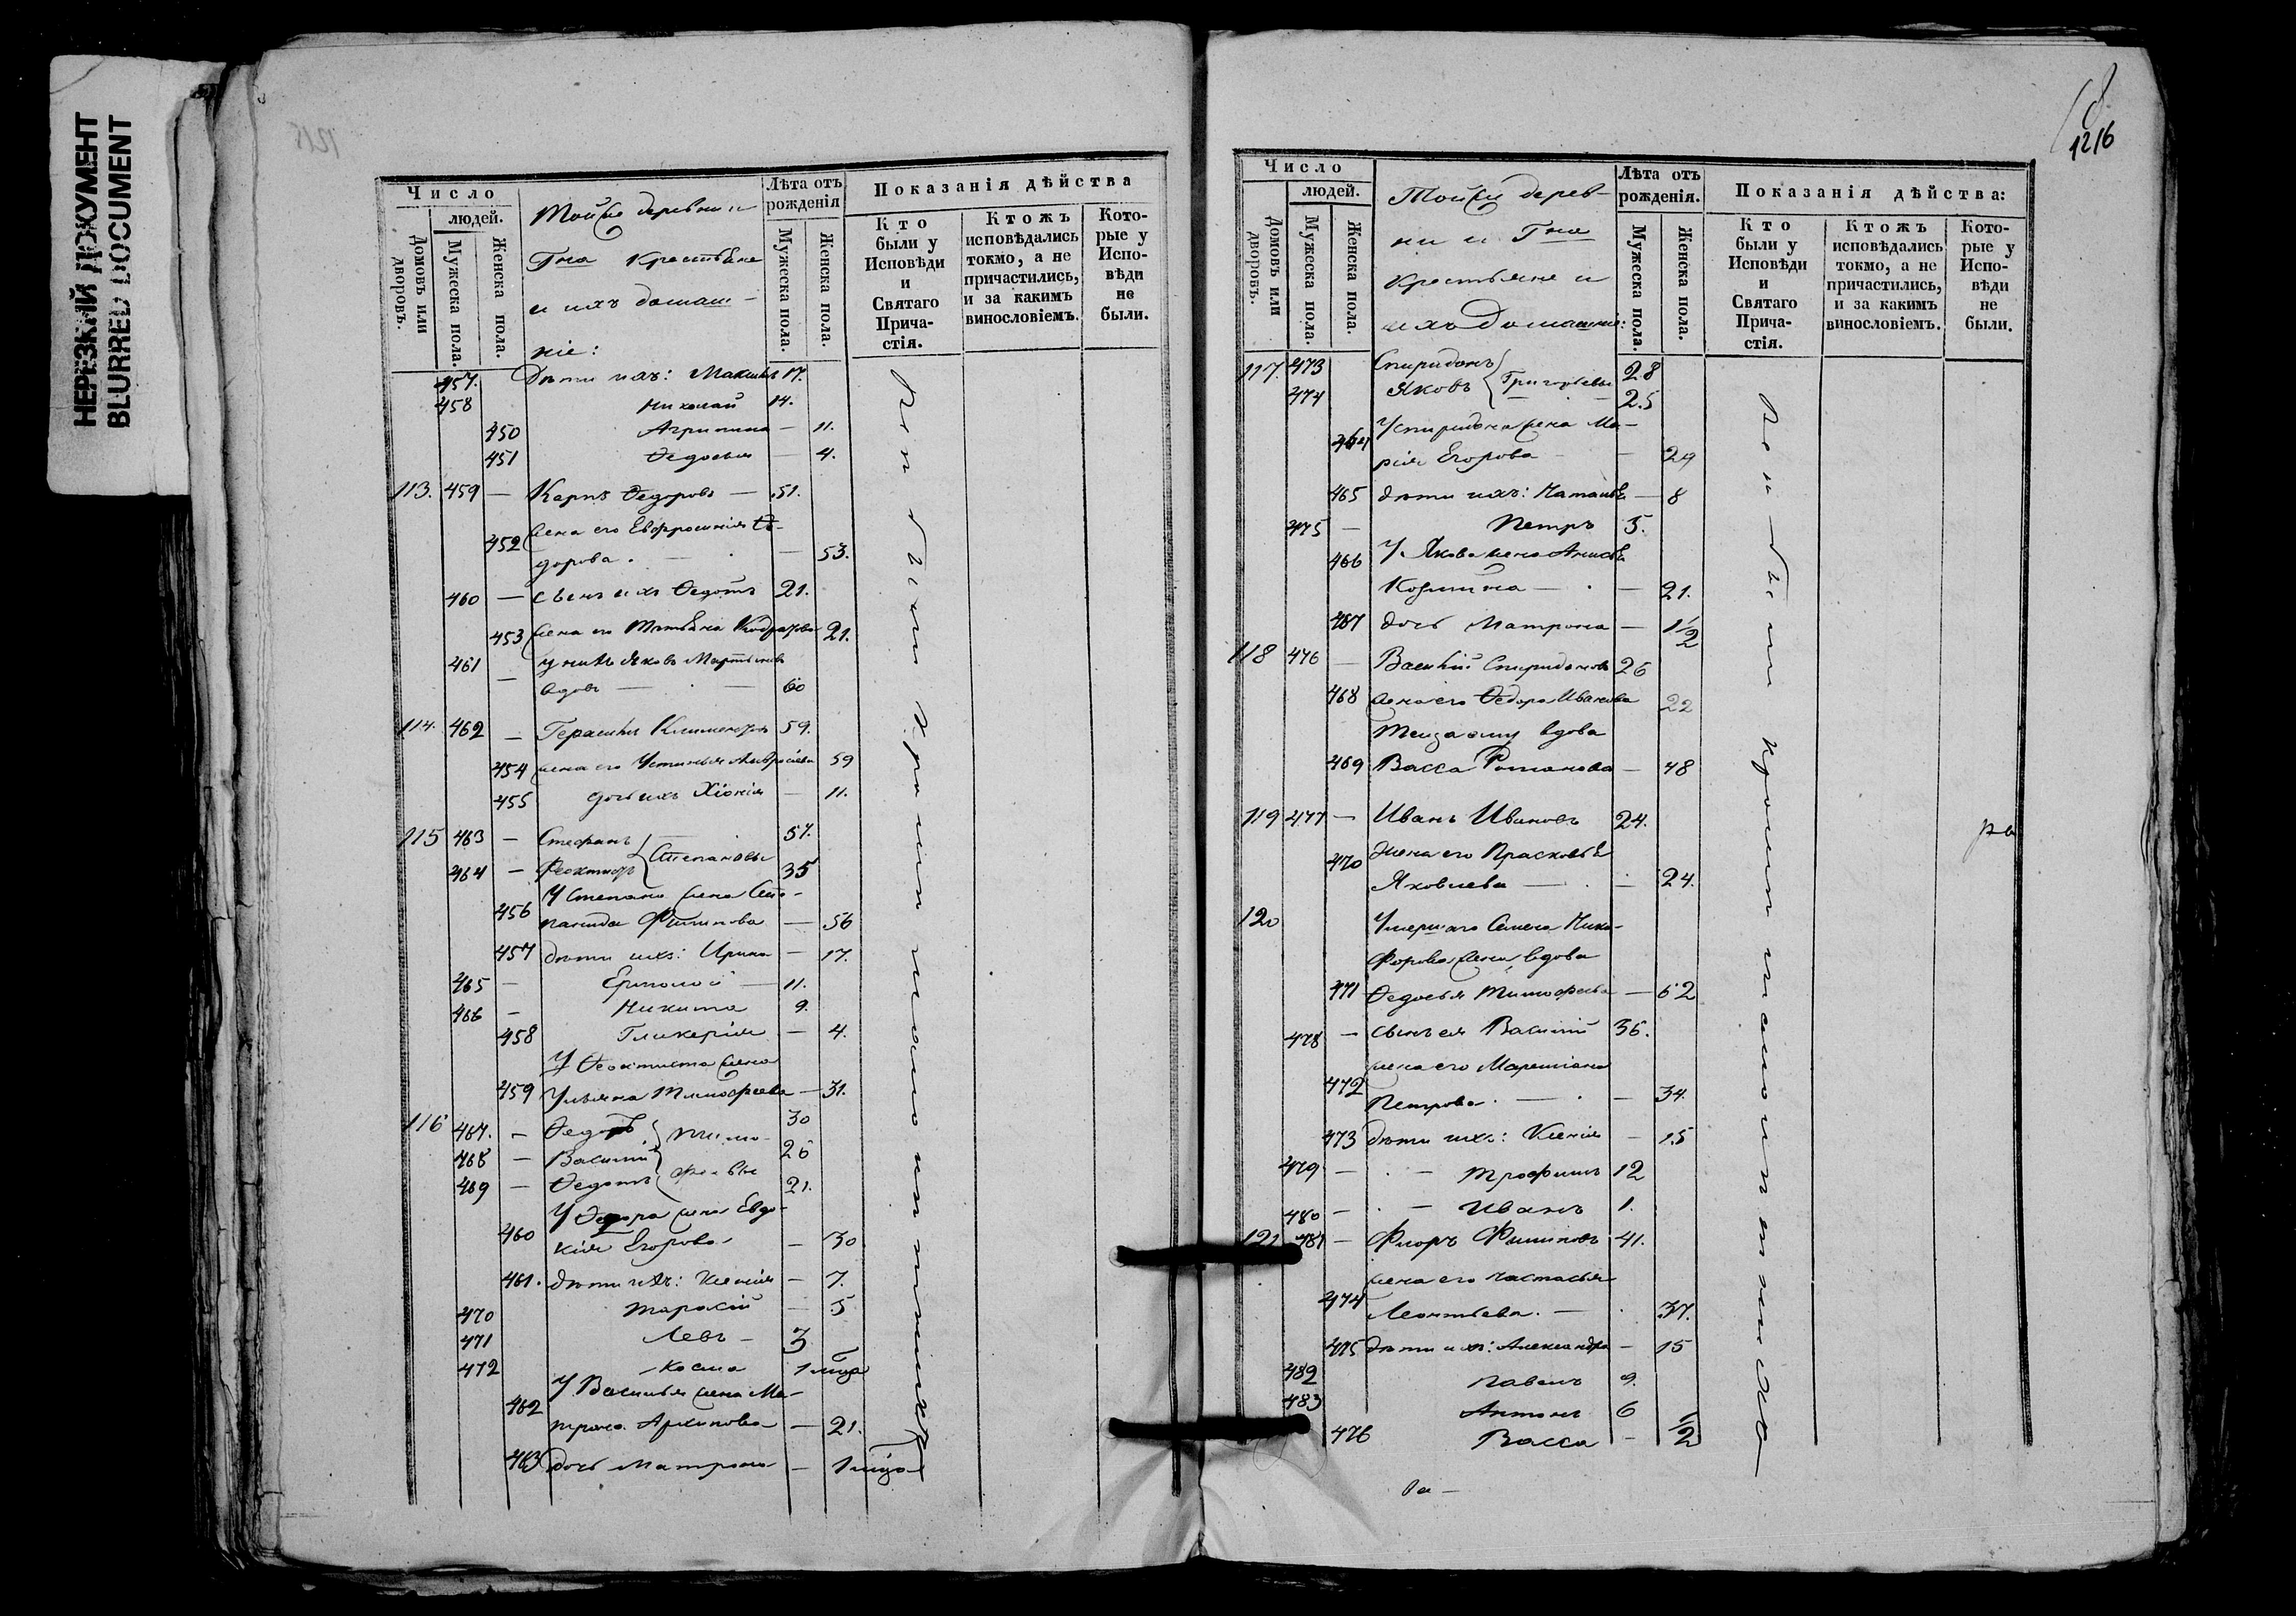 НЕРЕЗКИЙ ДОКУМЕНТ
BLURRED DOCUMENT
Число
людей.
Домовъ или дворовъ.
Мужеска пола.
Женска пола.
Тойже деревни и
Гна Крестьяне
и ихъ домаш-
ніе:
Лѣта отъ рожденія
Мужеска пола.
Женска пола.
Показанія дѣйства
Кто были у Исповѣди и Святаго Прича-стія.
Ктожъ исповѣдались токмо, а не причастились, и за какимъ винословіемъ.
Кото-рые у Испо-вѣди не были.
457. Дѣти ихъ: Максимъ 17.
458 Николай 14.
450 Агрипина — 11.
451 Ѳедосья — 4.
113. 459 — Карпъ Ѳедоровъ — 51.
452 жена его Евфросинія Ѳе-
дорова. — 53.
460 — сынъ ихъ Ѳедотъ 21.
453 жена его Татьяна 21.
461 — у нихъ Яковъ Мартыновъ
вдовъ — 60
114. 462 — Герасимъ Климентовъ 59.
454 жена его Устинья Амвросіева 59
455 дочь ихъ Хіонія — 11.
115 463 — Стефанъ 57.
464 — Феоктистъ Степановы 35
У Степана жена Сте-
456 панида Филипова — 56
457 дѣти ихъ: Ирина — 17.
465 — Ермолай — 11.
466 — Никита 9.
458 Гликерія — 4.
У Ѳеоктиста жена
459 Ульяна Тимофеева — 31.
116 467. — Ѳедоръ Тимо- 30
468 — Василій 26
469 — Ѳедотъ феевы 21.
У Ѳедора жена Евдо-
460 кія Егорова — 30
461. дѣти ихъ: Ксенія — 7.
470 Тарасій — 5
471 Левъ — 3
472 Косма 1 мца
У Василья жена Ма-
462 трона Архипова — 21.
463 дочь Матрона — 1 мца
1216
Число
людей.
Домовъ или дворовъ.
Мужеска пола.
Женска пола.
Тойже дерев-
ни и Гна
крестьяне и
ихъ домашніе:
Лѣта отъ рожденія.
Мужеска пола.
Женска пола.
Показанія дѣйства:
Кто были у Исповѣди и Святаго Прича-стія.
Ктожъ исповѣдались токмо, а не причастились, и за какимъ винословіемъ.
Кото-рые у Испо-вѣди не были.
117. 473 Спиридонъ 28
474 Яковъ Григорьевы 25
У Спиридона жена Ма-
464 рія Егорова — 29
465 дѣти ихъ: Наталья — 8
475 — Петръ 5.
466 У Якова жена Анисья
Козмина — 21.
467 дочь Матрона — 1 1/2
118 476 — Василій Спиридоновъ 26
468 жена его Ѳедора Иванова 22
Теща ему вдова
469 Васса Романова — 48
119 477 — Иванъ Ивановъ 24.
470 Жена его Прасковья
Яковлева — 24.
120 Умершаго Семена Ники-
форова жена вдова
471 Ѳедосья Тимофеева — 62
478 — сынъ ея Василій 36.
жена его Мареміана
472 Петрова. — 34.
473 дѣти ихъ: Ксенія — 15
479 — Трофимъ 12
480 — Иванъ 1.
121 481 — Флоръ Филиповъ 41.
жена его Настасья
474 Леонтьева. — 37.
475 дѣти ихъ: Александра — 15
482 Павелъ 9.
483 Антонъ 6
476 Васса — 1/2